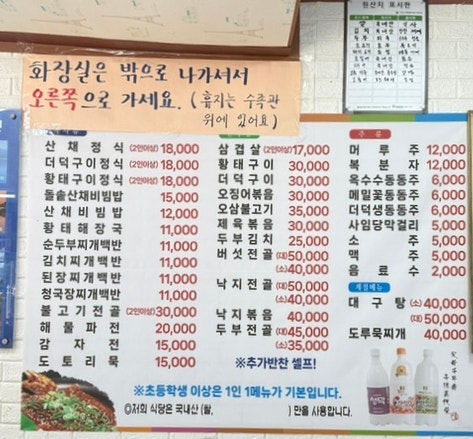 화장실은 밖으로 나가셔서
오른쪽으로 가세요. (휴지는 수족관
위에 있어요)
원산지 표시판
산채정식 (2인이상) 18,000
더덕구이정식 (2인이상) 18,000
황태구이정식 (2인이상) 18,000
돌솥산채비빔밥 15,000
산채비빔밥 12,000
황태해장국 11,000
순두부찌개백반 11,000
김치찌개백반 11,000
된장찌개백반 11,000
청국장찌개백반 11,000
불고기전골 (2인이상) 30,000
해물파전 20,000
감자전 15,000
도토리묵 15,000
삼겹살 (2인이상) 17,000
황태구이 30,000
더덕구이 30,000
오징어볶음 30,000
오삼불고기 35,000
제육볶음 30,000
두부김치 25,000
버섯전골 (대) 50,000
(소) 40,000
낙지전골 (대) 50,000
(소) 40,000
낙지볶음 40,000
두부전골 (대) 45,000
(소) 35,000
※추가반찬 셀프!
주류
머루주 12,000
복분자 12,000
옥수수동동주 6,000
메밀꽃동동주 6,000
더덕생동동주 6,000
사임당막걸리 5,000
소주 5,000
맥주 5,000
음료수 2,000
계절메뉴
대구탕 (소) 40,000
(대) 50,000
도루묵찌개 40,000
※초등학생 이상은 1인 1메뉴가 기본입니다.
◎저희 식당은 국내산(쌀, )만을 사용합니다.